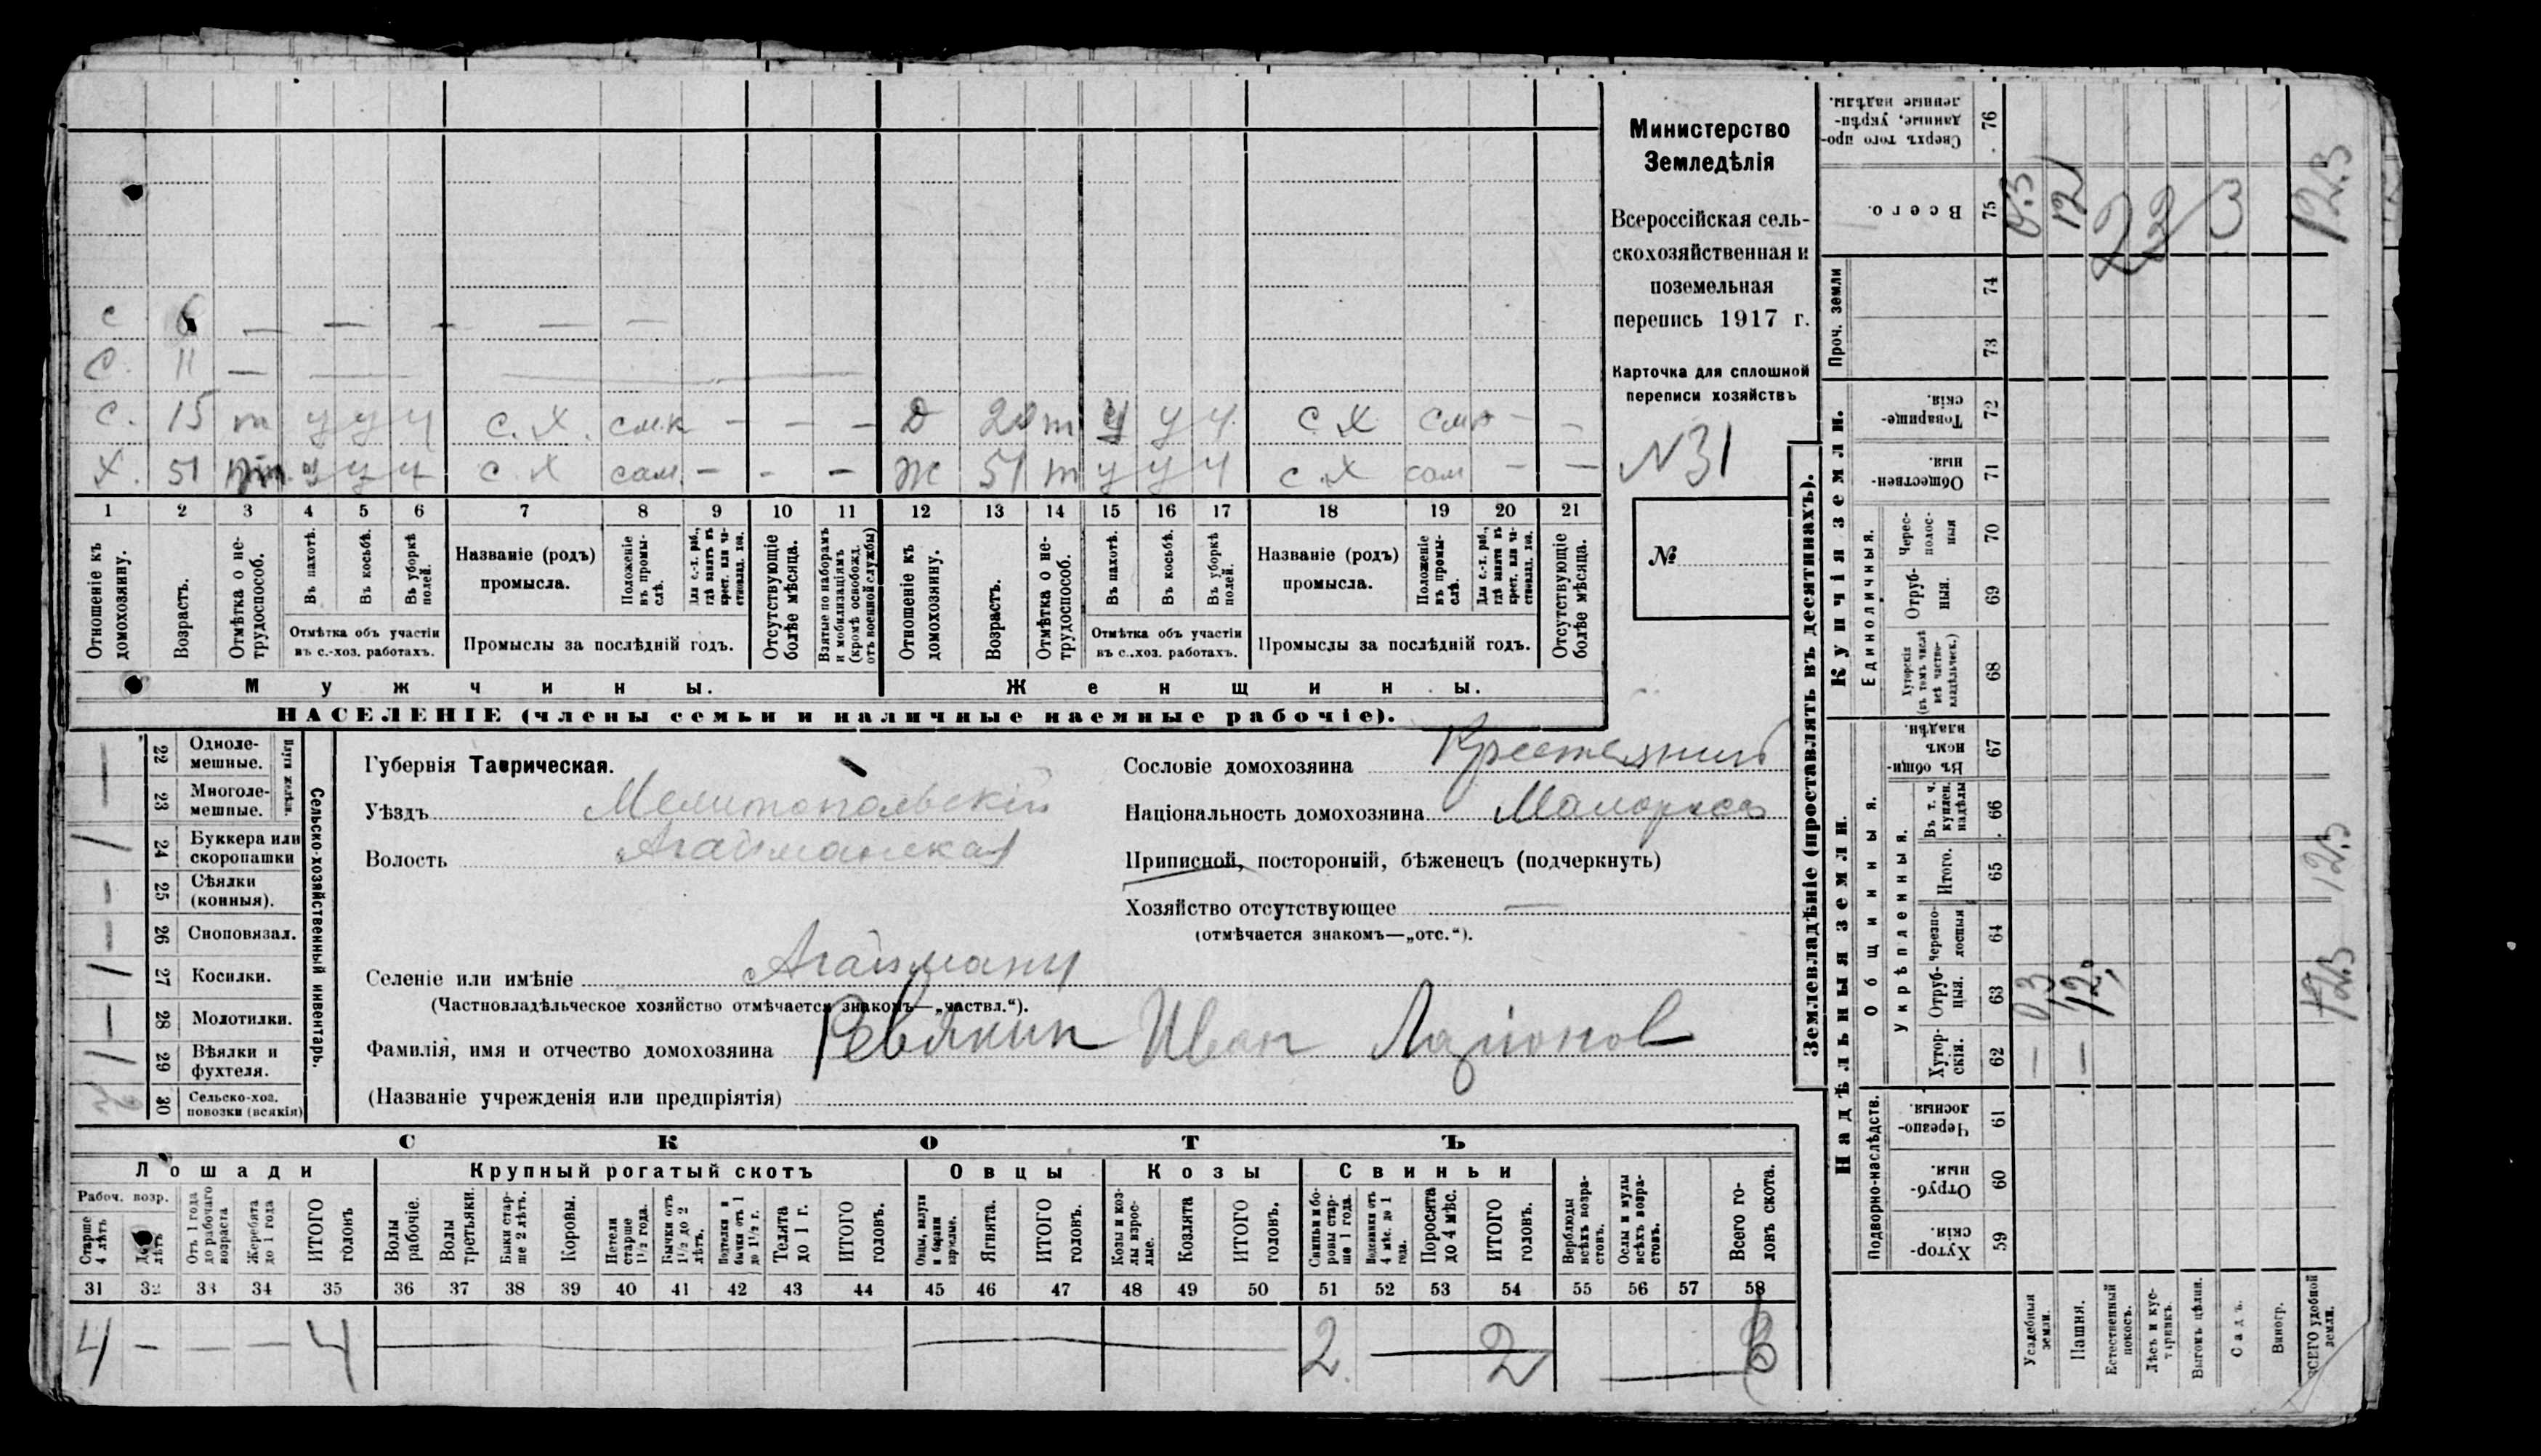 с 6 — — — — —
с. 11 — — —
с. 15 т у у ч с. х. см.к — — — д 20 т у у ч. с х —
х. 51 у у ч с. х сам. — - — ж 51 т у у ч с. х сам — —
1 2 3 4 5 6 7 8 9 10 11 12 13 14 15 16 17 18 19 20 21
Отношеніе къ домохозяину.
Возрастъ.
Отмѣтка о нетрудоспособ.
Въ пахотѣ.
Въ косьбѣ.
Въ уборкѣ полей.
Отмѣтка объ участіи въ с.-хоз. работахъ.
Названіе (родъ) промысла.
Положеніе въ промыслѣ.
Для с.-х. раб., гдѣ занятъ въ крест. или частновлад. хоз.
Промыслы за послѣдній годъ.
Отсутствующіе болѣе мѣсяца.
Взятые по наборамъ и мобилизаціямъ (кромѣ освобожд. отъ военной службы)
Отношеніе къ домохозяину.
Возрастъ.
Отмѣтка о нетрудоспособ.
Въ пахотѣ.
Въ косьбѣ.
Въ уборкѣ полей.
Отмѣтка объ участіи въ с..хоз. работахъ.
Названіе (родъ) промысла.
Положеніе въ промыслѣ.
Для с.-х. раб., гдѣ занята въ крест. или частновлад. хоз.
Промыслы за послѣдній годъ.
Отсутствующіе болѣе мѣсяца.
Мужчины.
Женщины.
НАСЕЛЕНІЕ (члены семьи и наличные наемные рабочіе).
Министерство
Земледѣлія
Всероссійская сель-
скохозяйственная и
поземельная
перепись 1917 г.
Карточка для сплошной
переписи хозяйствъ
№31
№
Сельско-хозяйственный инвентарь.
Плуги желѣзн.
— 22 Одноле-
мешные.
— 23 Многоле-
мешные.
1 24 Буккера или
скоропашки
— 25 Сѣялки
(конныя).
— 26 Сноповязал.
1 27 Косилки.
— 28 Молотилки.
1 29 Вѣялки и
фухтеля.
30 Сельско-хоз.
повозки (всякія)
Губернія Таврическая.
Уѣздъ Мелитопольскій
Волость Агайманская
Селеніе или имѣніе Агайманы
(Частновладѣльческое хозяйство отмѣчается знакомъ—„частвл.“).
Фамилія, имя и отчество домохозяина Ревякин Иван Ларіонов
(Названіе учрежденія или предпріятія)
Сословіе домохозяина Крестьянин
Національность домохозяина Малоросъ
Приписной, посторонній, бѣженецъ (подчеркнуть)
Хозяйство отсутствующее —
(отмѣчается знакомъ—„отс.“).
СКОТЪ
Лошади Крупный рогатый скотъ Овцы Козы Свиньи
Рабоч. возр.
Старше 4 лѣтъ
лѣтъ
Отъ 1 года до рабочаго возраста
Жеребята до 1 года
ИТОГО головъ
Волы рабочіе.
Волы третьяки.
Быки старше 2 лѣтъ.
Коровы.
Нетели старше 1½ года.
Бычки отъ 1½ до 2 лѣтъ.
Подтелки и бычки отъ 1 до 1½ г.
Телята до 1 г.
ИТОГО головъ.
Овцы, валухи и бараны взрослые.
Ягнята.
ИТОГО головъ.
Козы и козлы взрослые.
Козлята
ИТОГО головъ.
Свиньи и боровы старше 1 года.
Подсвинки отъ 4 мѣс. до 1 года.
Поросята до 4 мѣс.
ИТОГО головъ.
Верблюды всѣхъ возрастовъ.
Ослы и мулы всѣхъ возрастовъ.
Всего головъ скота.
31 32 33 34 35 36 37 38 39 40 41 42 43 44 45 46 47 48 49 50 51 52 53 54 55 56 57 58
4 — — — 4 — — 2 — 2 —
Землевладѣніе (проставлять въ десятинахъ).
Купчія земли.
Надѣльныя земли.
Сверхъ того проданные, укрѣпленные надѣлы. 76
Всего. 75
Проч. земли 74 73
Товарищескія. 72
Общественныя. 71
Единоличныя.
Чересполосныя 70
Отрубныя. 69
Хуторскія (въ томъ числѣ всѣ частновладѣльческ.) 68
Общинныя.
Въ общинномъ владѣн. 67
Укрѣпленныя.
Въ т. ч. куплен. надѣлы 66
Итого. 65
черезполосныя 64
Отрубныя. 63
Хуторскія. 62
Подворно-наслѣдств.
Черезполосныя. 61
Отрубныя. 60
Хуторскія. 59
Усадебныя земли.
Пашня.
Естественный покосъ.
Лѣсъ и кустарникъ.
Выгонъ цѣлин.
Садъ.
Виногр.
ВСЕГО удобной земли.
03
12
—
—
23